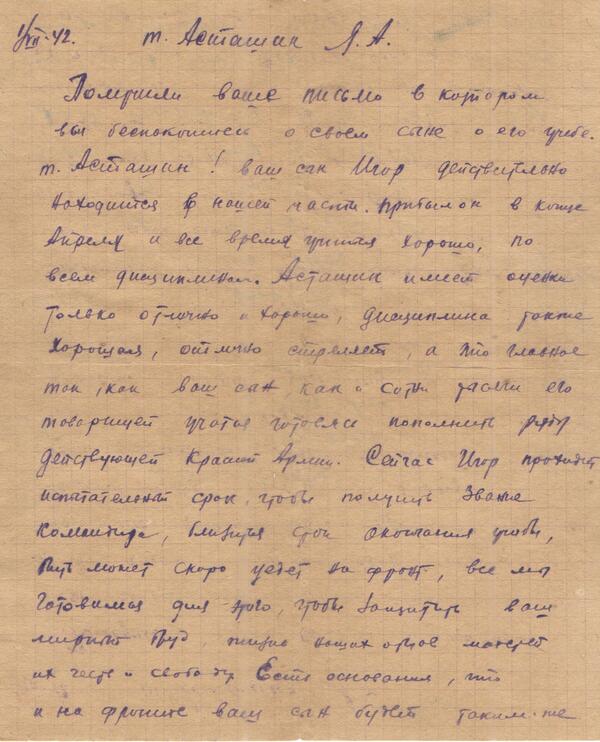 1/VII-42. т. Асташин Я. А.
Получили ваше письмо в котором
вы беспокоитесь о своем сыне о его учебе.
т. Асташин! ваш сын Игор действительно
находится в нашей части. прибыл он в конце
Апреля и все время учится хорошо, по
всем дисциплинам. Асташин имеет оценки
только отлично и хорошо, дисциплина также
хорошая, отлично стреляет, а это главное
так, как ваш сын, как и сотни тысяч его
товарищей учатся готовясь пополнить ряды
действующей Красной Армии. Сейчас Игор проходит
испытательный срок, чтобы получить звание
командира, близится срок окончания учебы,
быть может скоро уедет на фронт, все мы
готовимся для этого, чтобы защитить ваш
мирный труд, жизнь наших отцов матерей
их честь и свободу Есть основания, что
и на фронте ваш сын будет таким-же